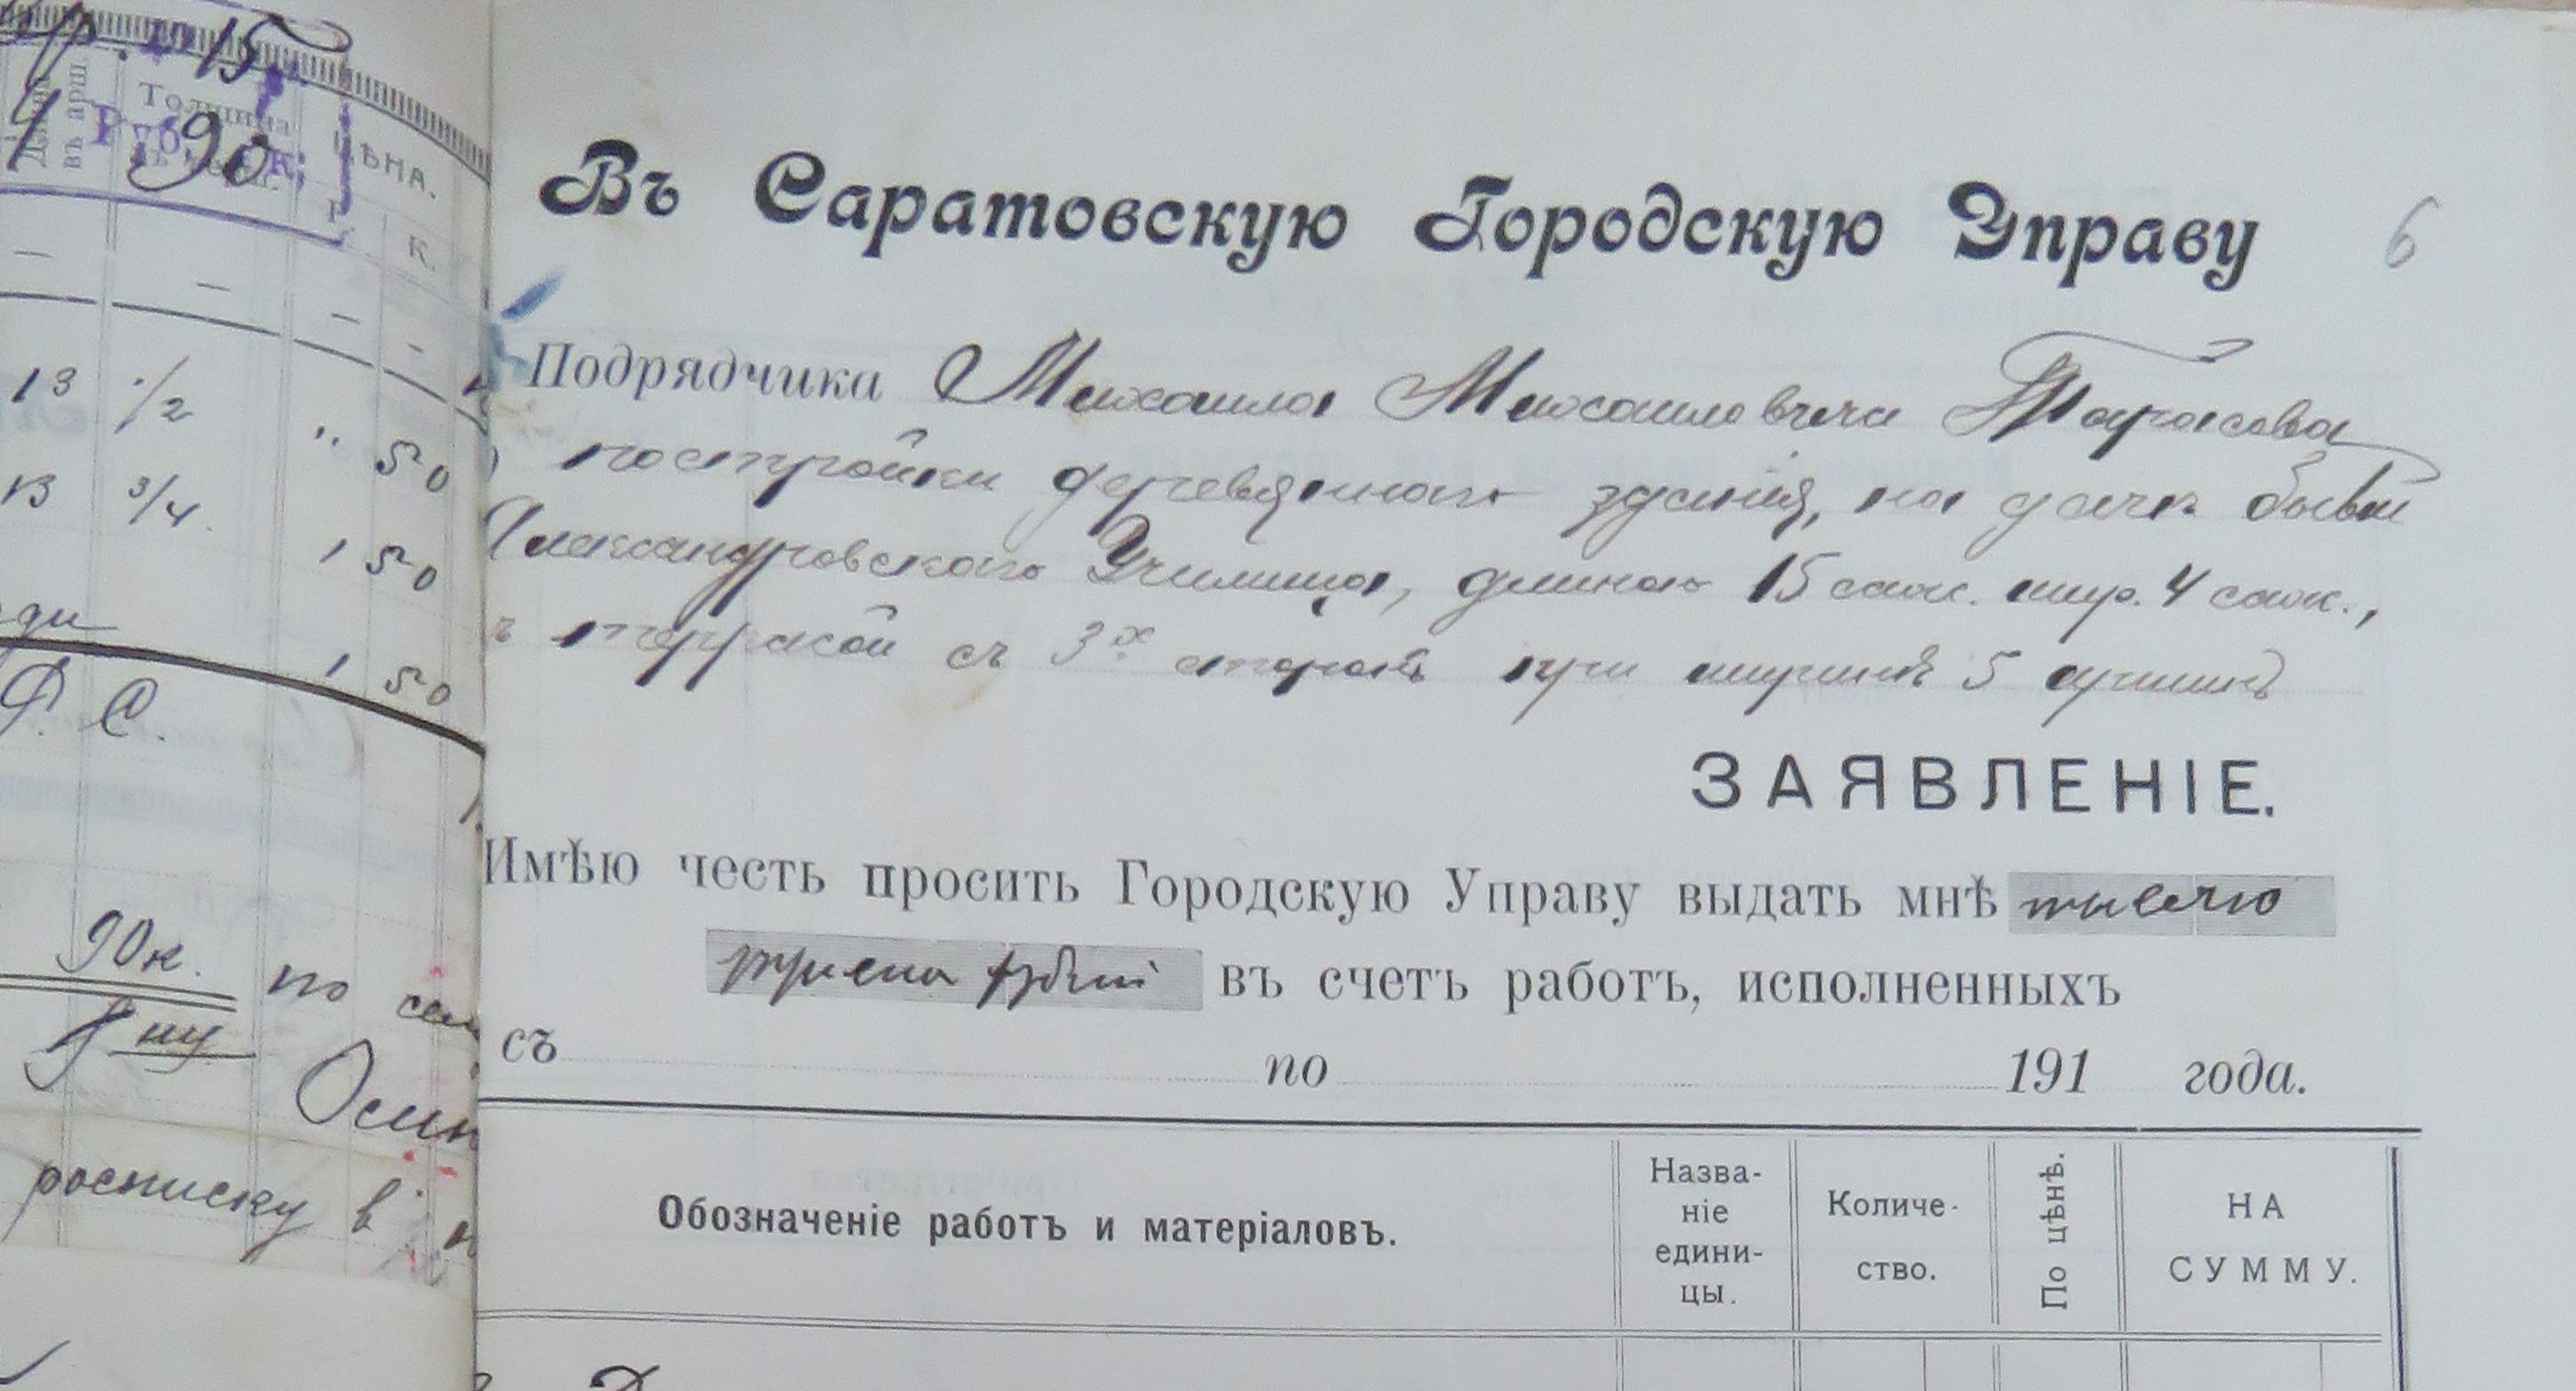 15
4 Руб. 90 к.
Длина въ арш.
Толщина
ЦѢНА.
Р. К.
— — — -
13 1/2 " 50
13 3/4. 1 50
1 50
Ф. С.
90 к. по
росписку в
Въ Саратовскую Городскую Управу
6
Подрядчика Михаила Михайловича Тарасова
постройки деревяннаго зданія, на дачѣ бывш
Александровскаго Училища, длиною 15 саж. шир. 4 саж.,
терраской съ 3х сторонъ при ширинѣ 5 аршинъ
ЗАЯВЛЕНІЕ.
Имѣю честь просить Городскую Управу выдать мнѣ тысячу
триста рублей въ счетъ работъ, исполненныхъ
съ по 191 года.
Обозначеніе работъ и матеріаловъ.
Назва-
ніе
едини-
цы.
Количе-
ство.
По цѣнѣ.
НА
СУММУ.